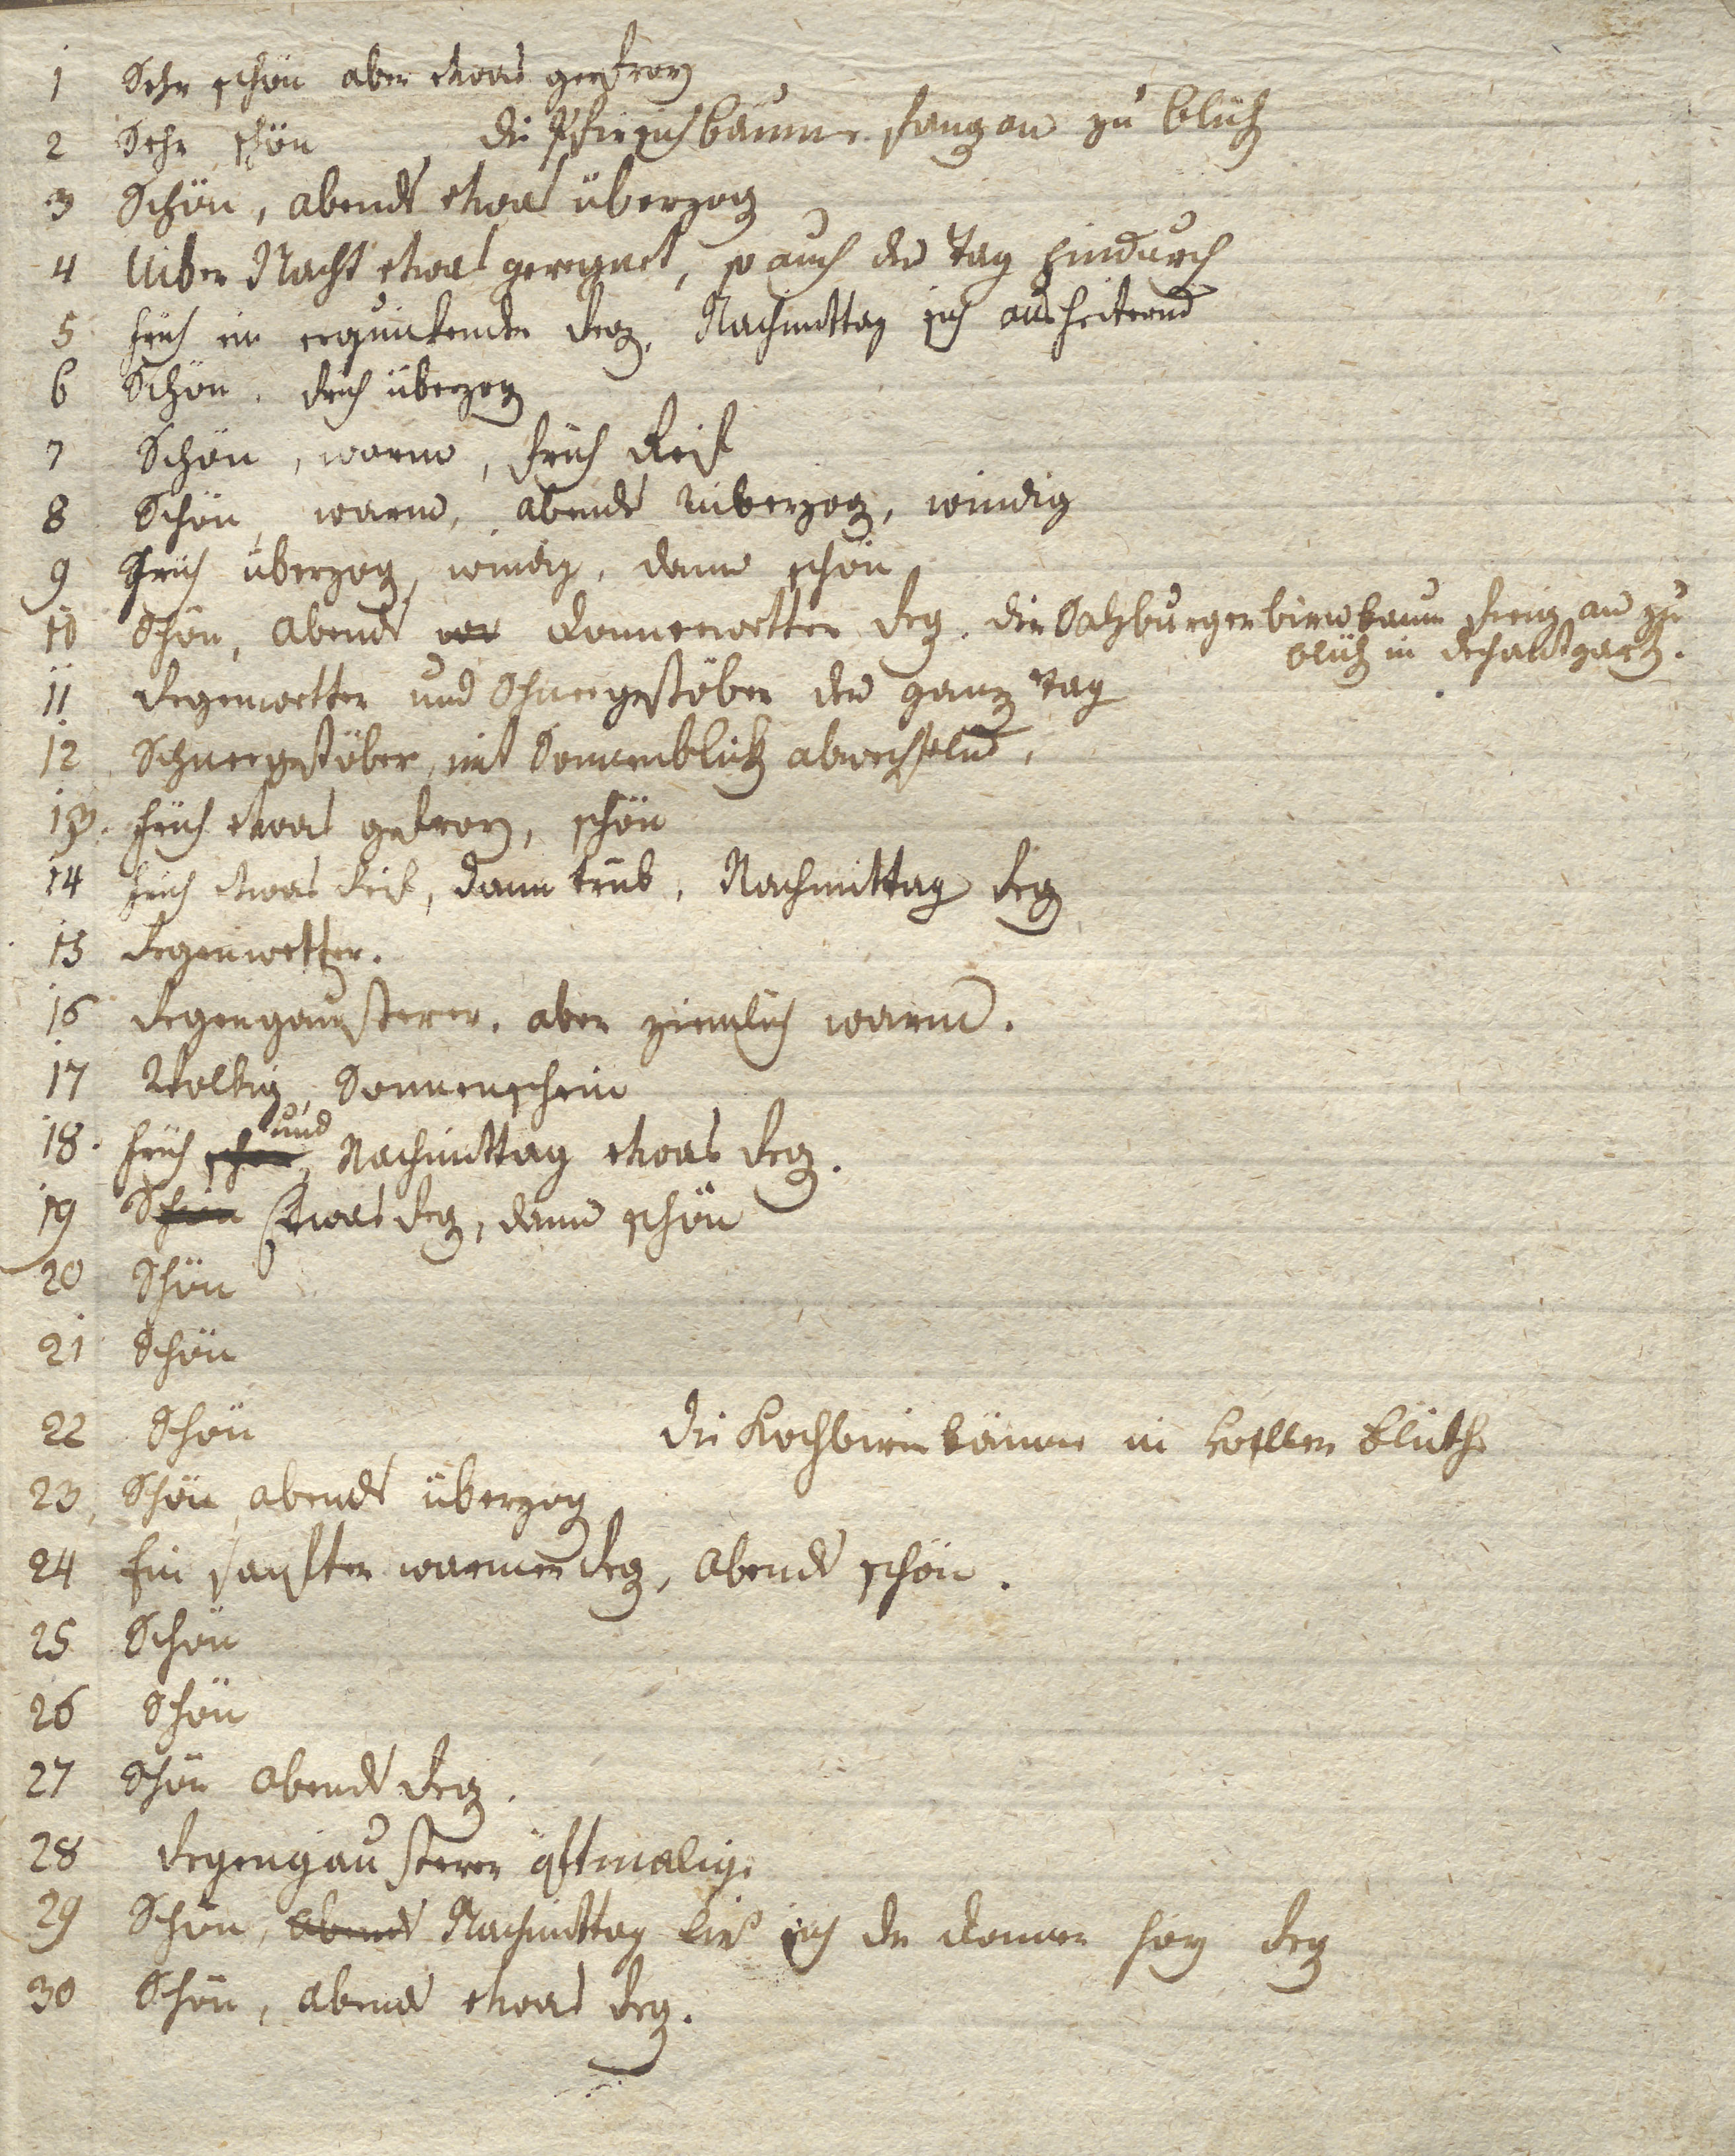 1 Sehr schön aber etwas gefroren
2 Sehr schön die Pfirsichbäume fangen an zu blühen
3 Schön, abends etwas überzogen
4 Uiber Nacht etwas geregnet, so auch den Tag hindurch
5 früh ein erquikender Regen, Nachmittag sich ausheiternd
6 Schön, früh überzogen
7 Schön, warm, früh Reif
8 Schön, warm, abends uiberzogen, windig
9 Früh überzogen, windig, dann schön
10 Schön, abends vor Donnerwetter Regen. Die Salzburgerbirnbaum fieng an zu
blühen in Dechantgarten.
11 Regenwetter und Schneegestöber den ganzen Tag
12 Schneegestöber, mit Sonnenblicken abwechselnd,
13. früh etwas gefroren, schön
14 früh etwas Reif, dann trüb, Nachmittag Regen
15 Regenwetter.
16 Regengausterer. aber ziemlich warm.
17 Wolkig, Sonnenschein
18. früh schön und Nachmittag etwas Regen.
19 Schön Etwas Regen, dann schön
20 Schön
21 Schön
22 Schön die Kochbirnbäume in voller Blüthe
23, Schön, abends überzogen
24 Ein sanfter warmer Regen, abends schön.
25 Schön
26 Schön
27 Schön abends Regen.
28 Regengausterer öftmalige
29 Schön, abends Nachmittag ließ sich der Donner hören Regen
30 Schön, abends etwas Regen.